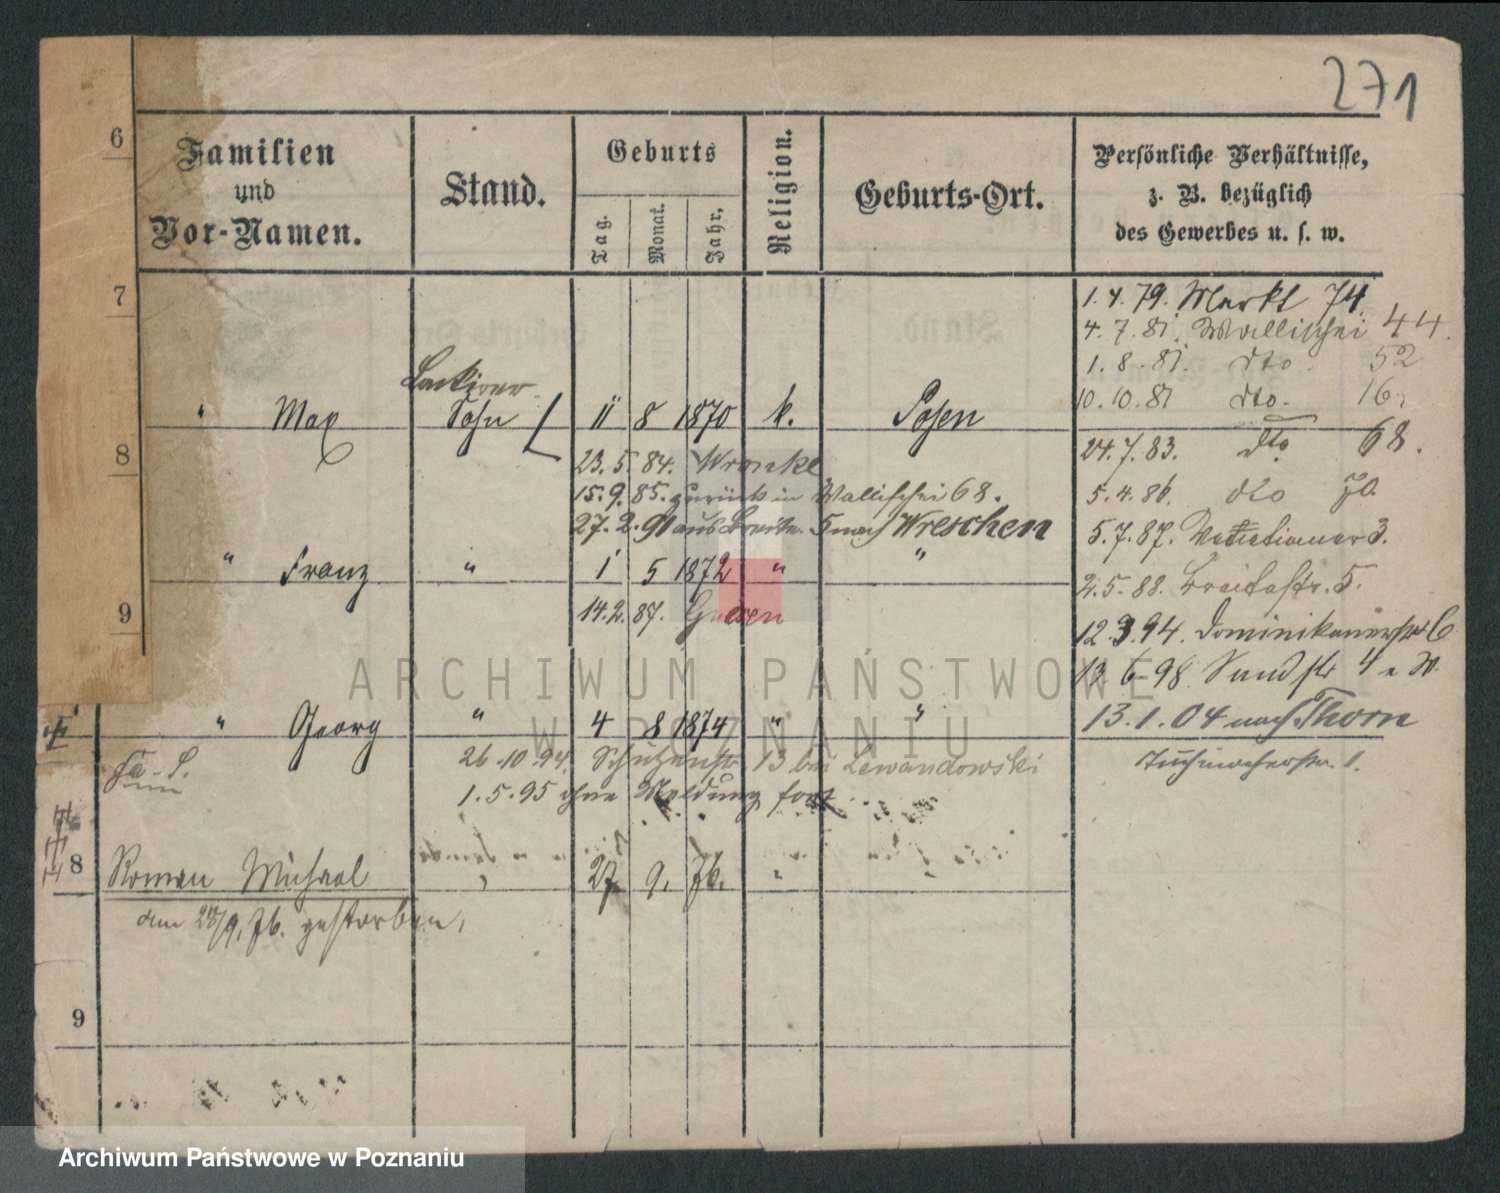 271
Familien
und
Vor-Namen.
Stand.
Geburts
Tag.
Monat.
Jahr,
Religion.
Geburts-Ort.
Persönliche Verhältnisse,
z. B. bezüglich
des Gewerbes u. s. w.
6
7
8
9
1. 4. 79. Markt 74.
4. 7. 81. Wallischei 44.
1. 8. 81. dto. 52
10. 10. 81 dto. 16.
24. 7. 83. dto 68.
5. 4. 86. dto 70.
5. 7. 87. 3.
2. 5. 88. Breitestr. 5.
12. 3. 94. Dominikanerstr 6
13. 6. 98. Sandstr 4
13. 1. 04 nach Thorn
Tuchmacherstr. 1.
Lackirer
" Max Sohn 11 8 1870 k. Posen
23. 5. 84. Wronke
15. 9. 85. zurück in Wallischei 68.
27. 2. 91 aus Breite. 5 nach Wreschen
" Franz " 1 5 1872 " "
14. 2. 87. Gnesen
" Georg " 4 8 1874 " "
26. 10. 94. Schützenstr. 13 bei Lewandowski
1. 5. 95 ohne Meldung fort
8 Roman Michael " 27 9. 76. " "
am 28/9. 76. gestorben.
9
ARCHIWUM PAŃSTWOWE
W POZNANIU
Archiwum Państwowe w Poznaniu